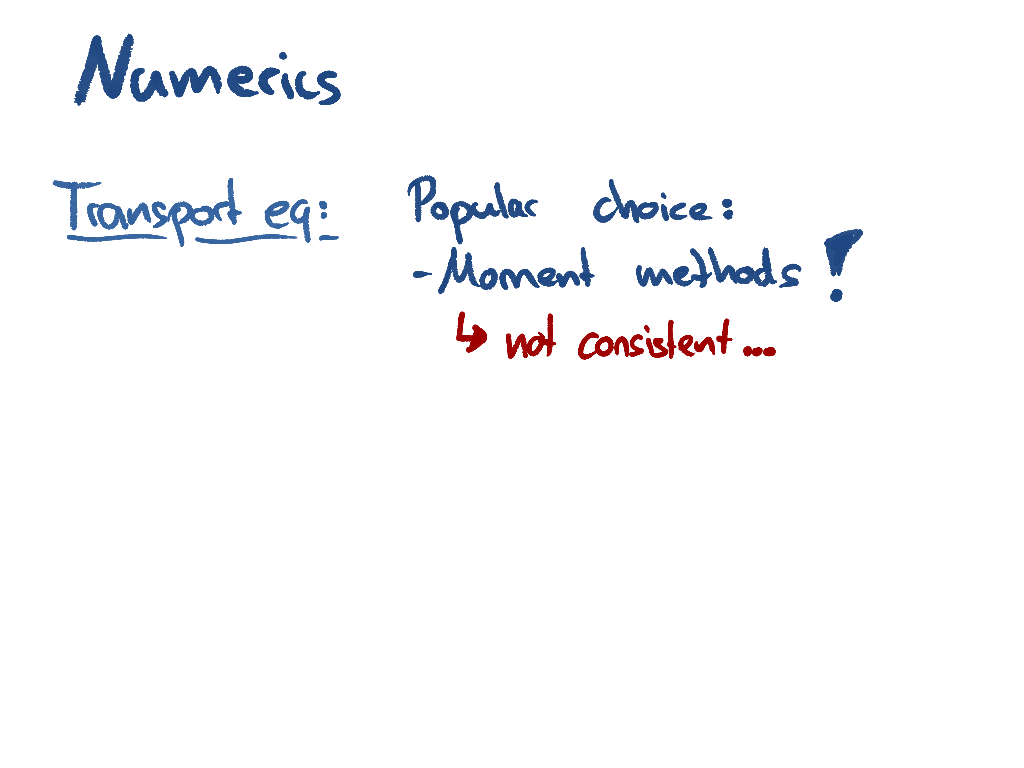 Numerics
Transport eq:
Popular choice:
- Moment methods !
↳ not consistent...